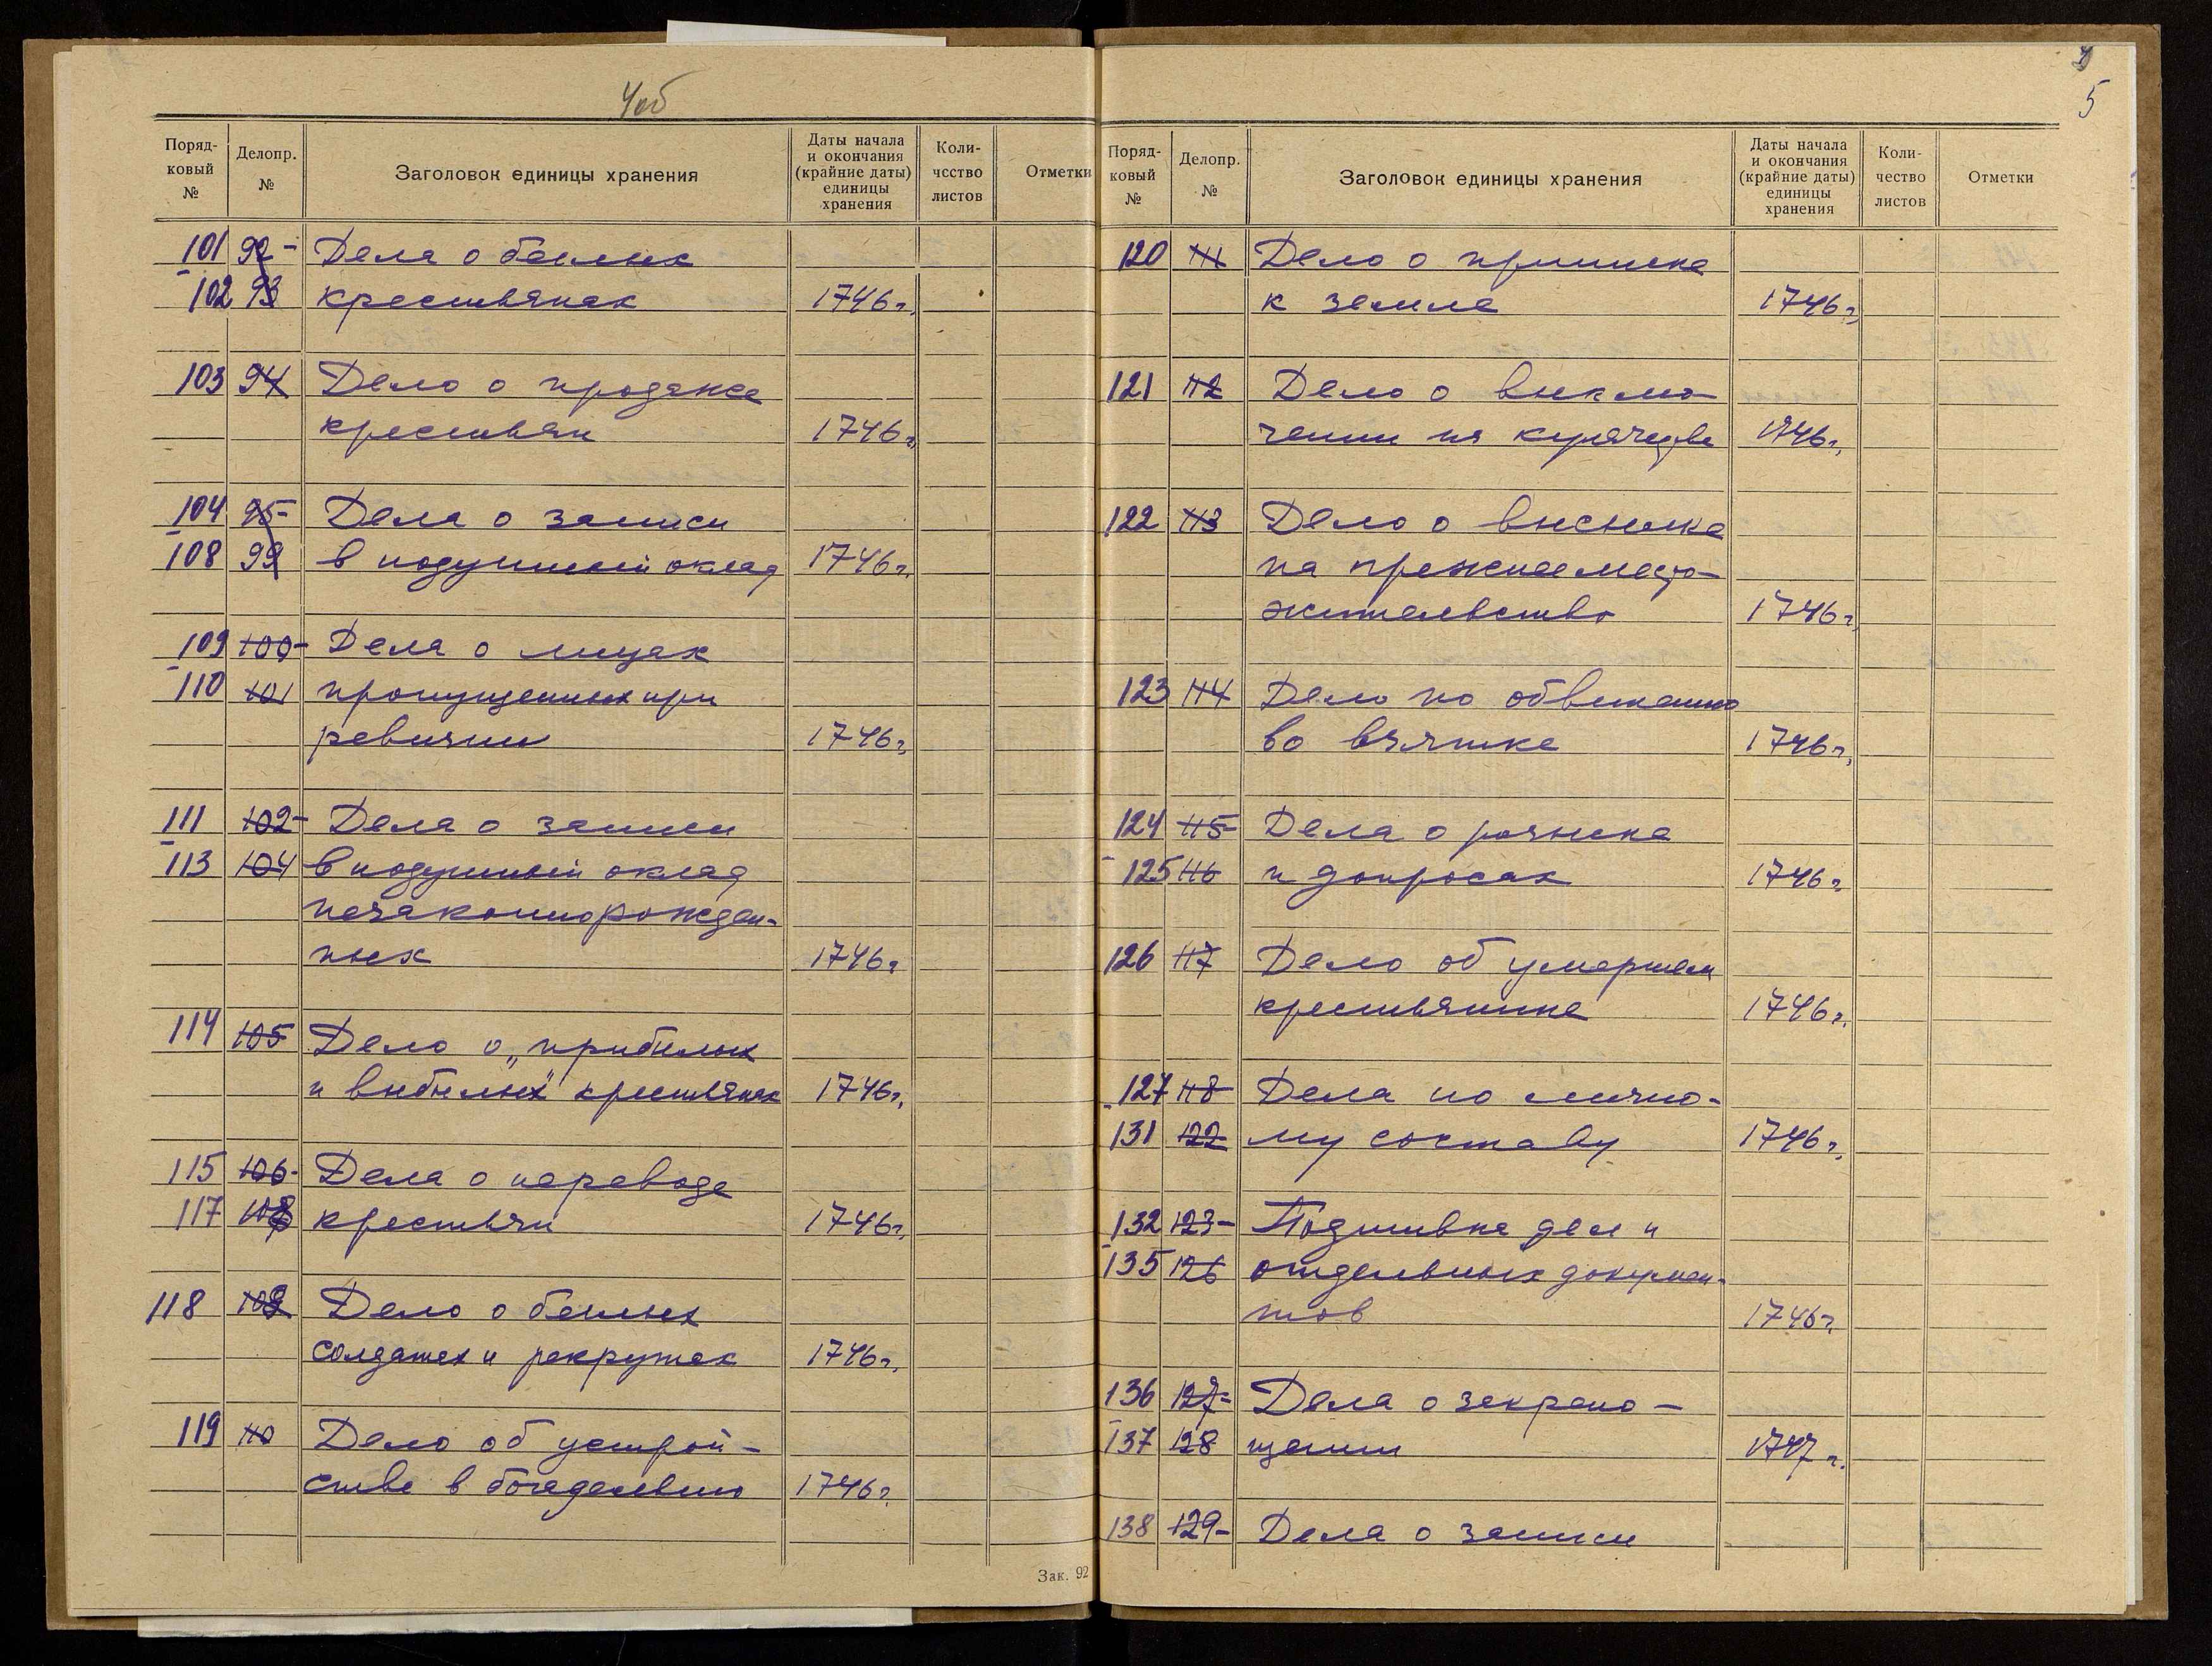 4об
Поряд-
ковый
№
Делопр.
№
Заголовок единицы хранения
Даты начала
и окончания
(крайние даты)
единицы
хранения
Коли-
чество
листов
Отметки
101 92- Дела о беглых
-102 93 крестьянах 1746г.
103 94 Дело о продаже
крестьян 1746г.
104 95- Дела о записи
-108 99 в подушный оклад 1746г.
109 100- Дела о лицах
-110 101 пропущенных при
ревизии 1746г.
111 102- Дела о записи
-113 104 в подушный оклад
незаконнорожден-
ных 1746г.
114 105 Дело о „прибылых
и выбылых" крестьянах 1746г.
115 106- Дела о переводе
117 108 крестьян 1746г.
118 109 Дело о беглых
солдатах и рекрутах 1746г.
119 110 Дело об устрой-
стве в богадельню 1746г.
Зак. 92
5
Поряд-
ковый
№
Делопр.
№
Заголовок единицы хранения
Даты начала
и окончания
(крайние даты)
единицы
хранения
Коли-
чество
листов
Отметки
120 111 Дело о приписке
к земле 1746г.
121 112 Дело о вклю-
чении на 1746г.
122 113 Дело о высылке
на прежнее место-
жительство 1746г.
123 114 Дело по обвинению
во взятке 1746г.
124 115- Дела о розыске
-125 116 и допросах 1746г.
126 117 Дело об умершем
крестьянине 1746г.
127 118- Дела по лично-
-131 122 му составу 1746г.
132 123- Подшивка дел и
-135 126 отдельных докумен-
тов 1746г.
136 127- Дела о закрепо-
-137 128 щении 1747г.
138 129- Дела о записи